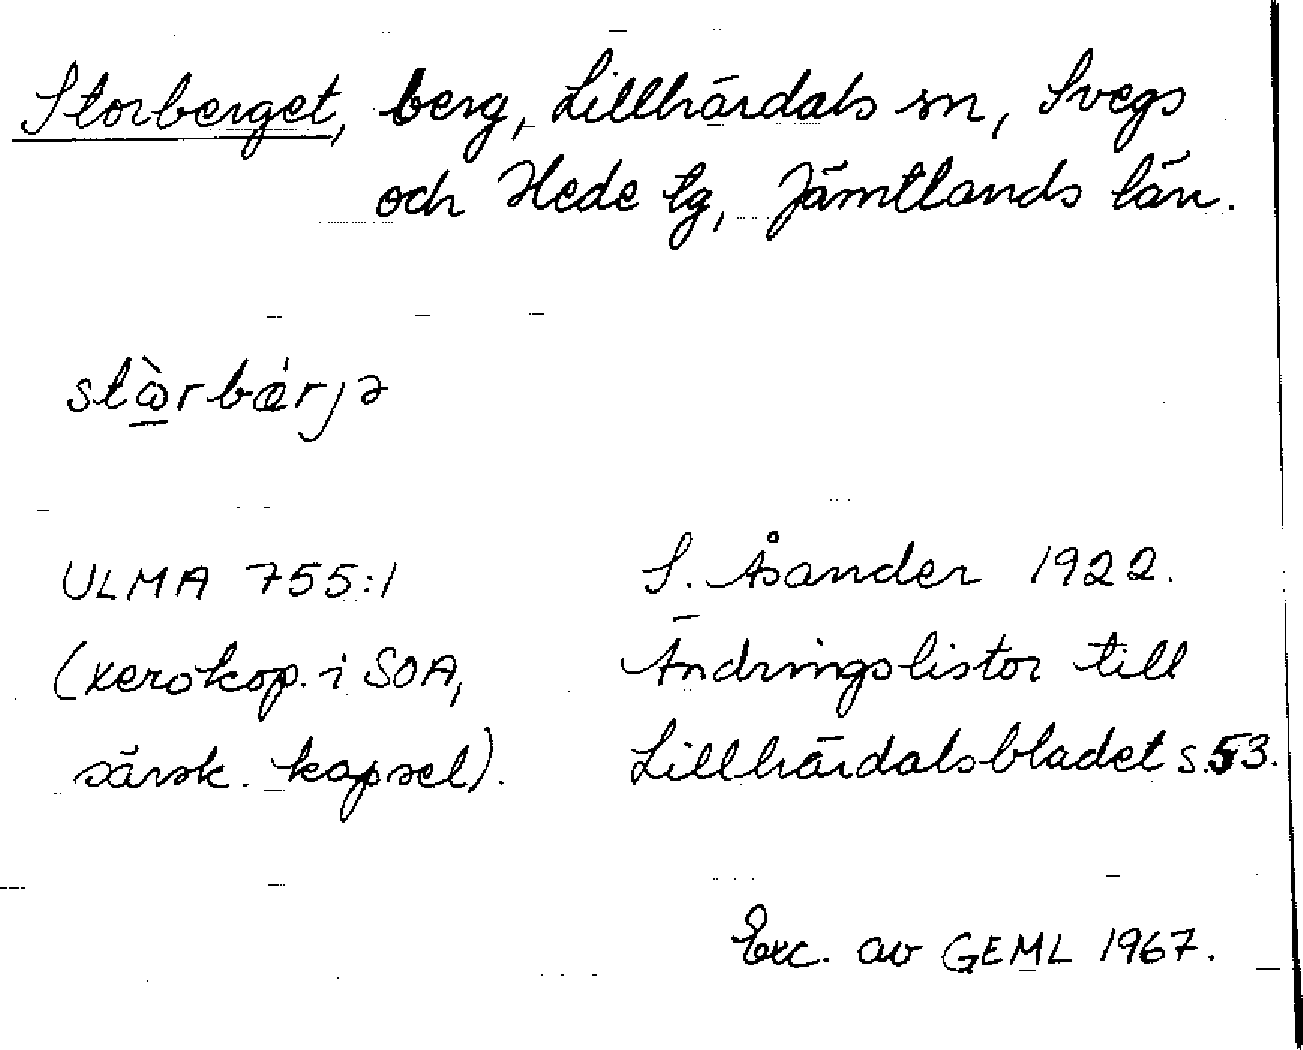 Storberget, berg, Lillhärdals sn, Svegs
och Hede tg, Jämtlands län.
stὼ̲rbǽrjə
ULMA 755:1
(xerokop. i SOA,
särsk. kapsel).
S. Åsander 1922.
Ändringslistor till
Lillhärdalsbladet s. 53.
Exc. av GEML 1967.